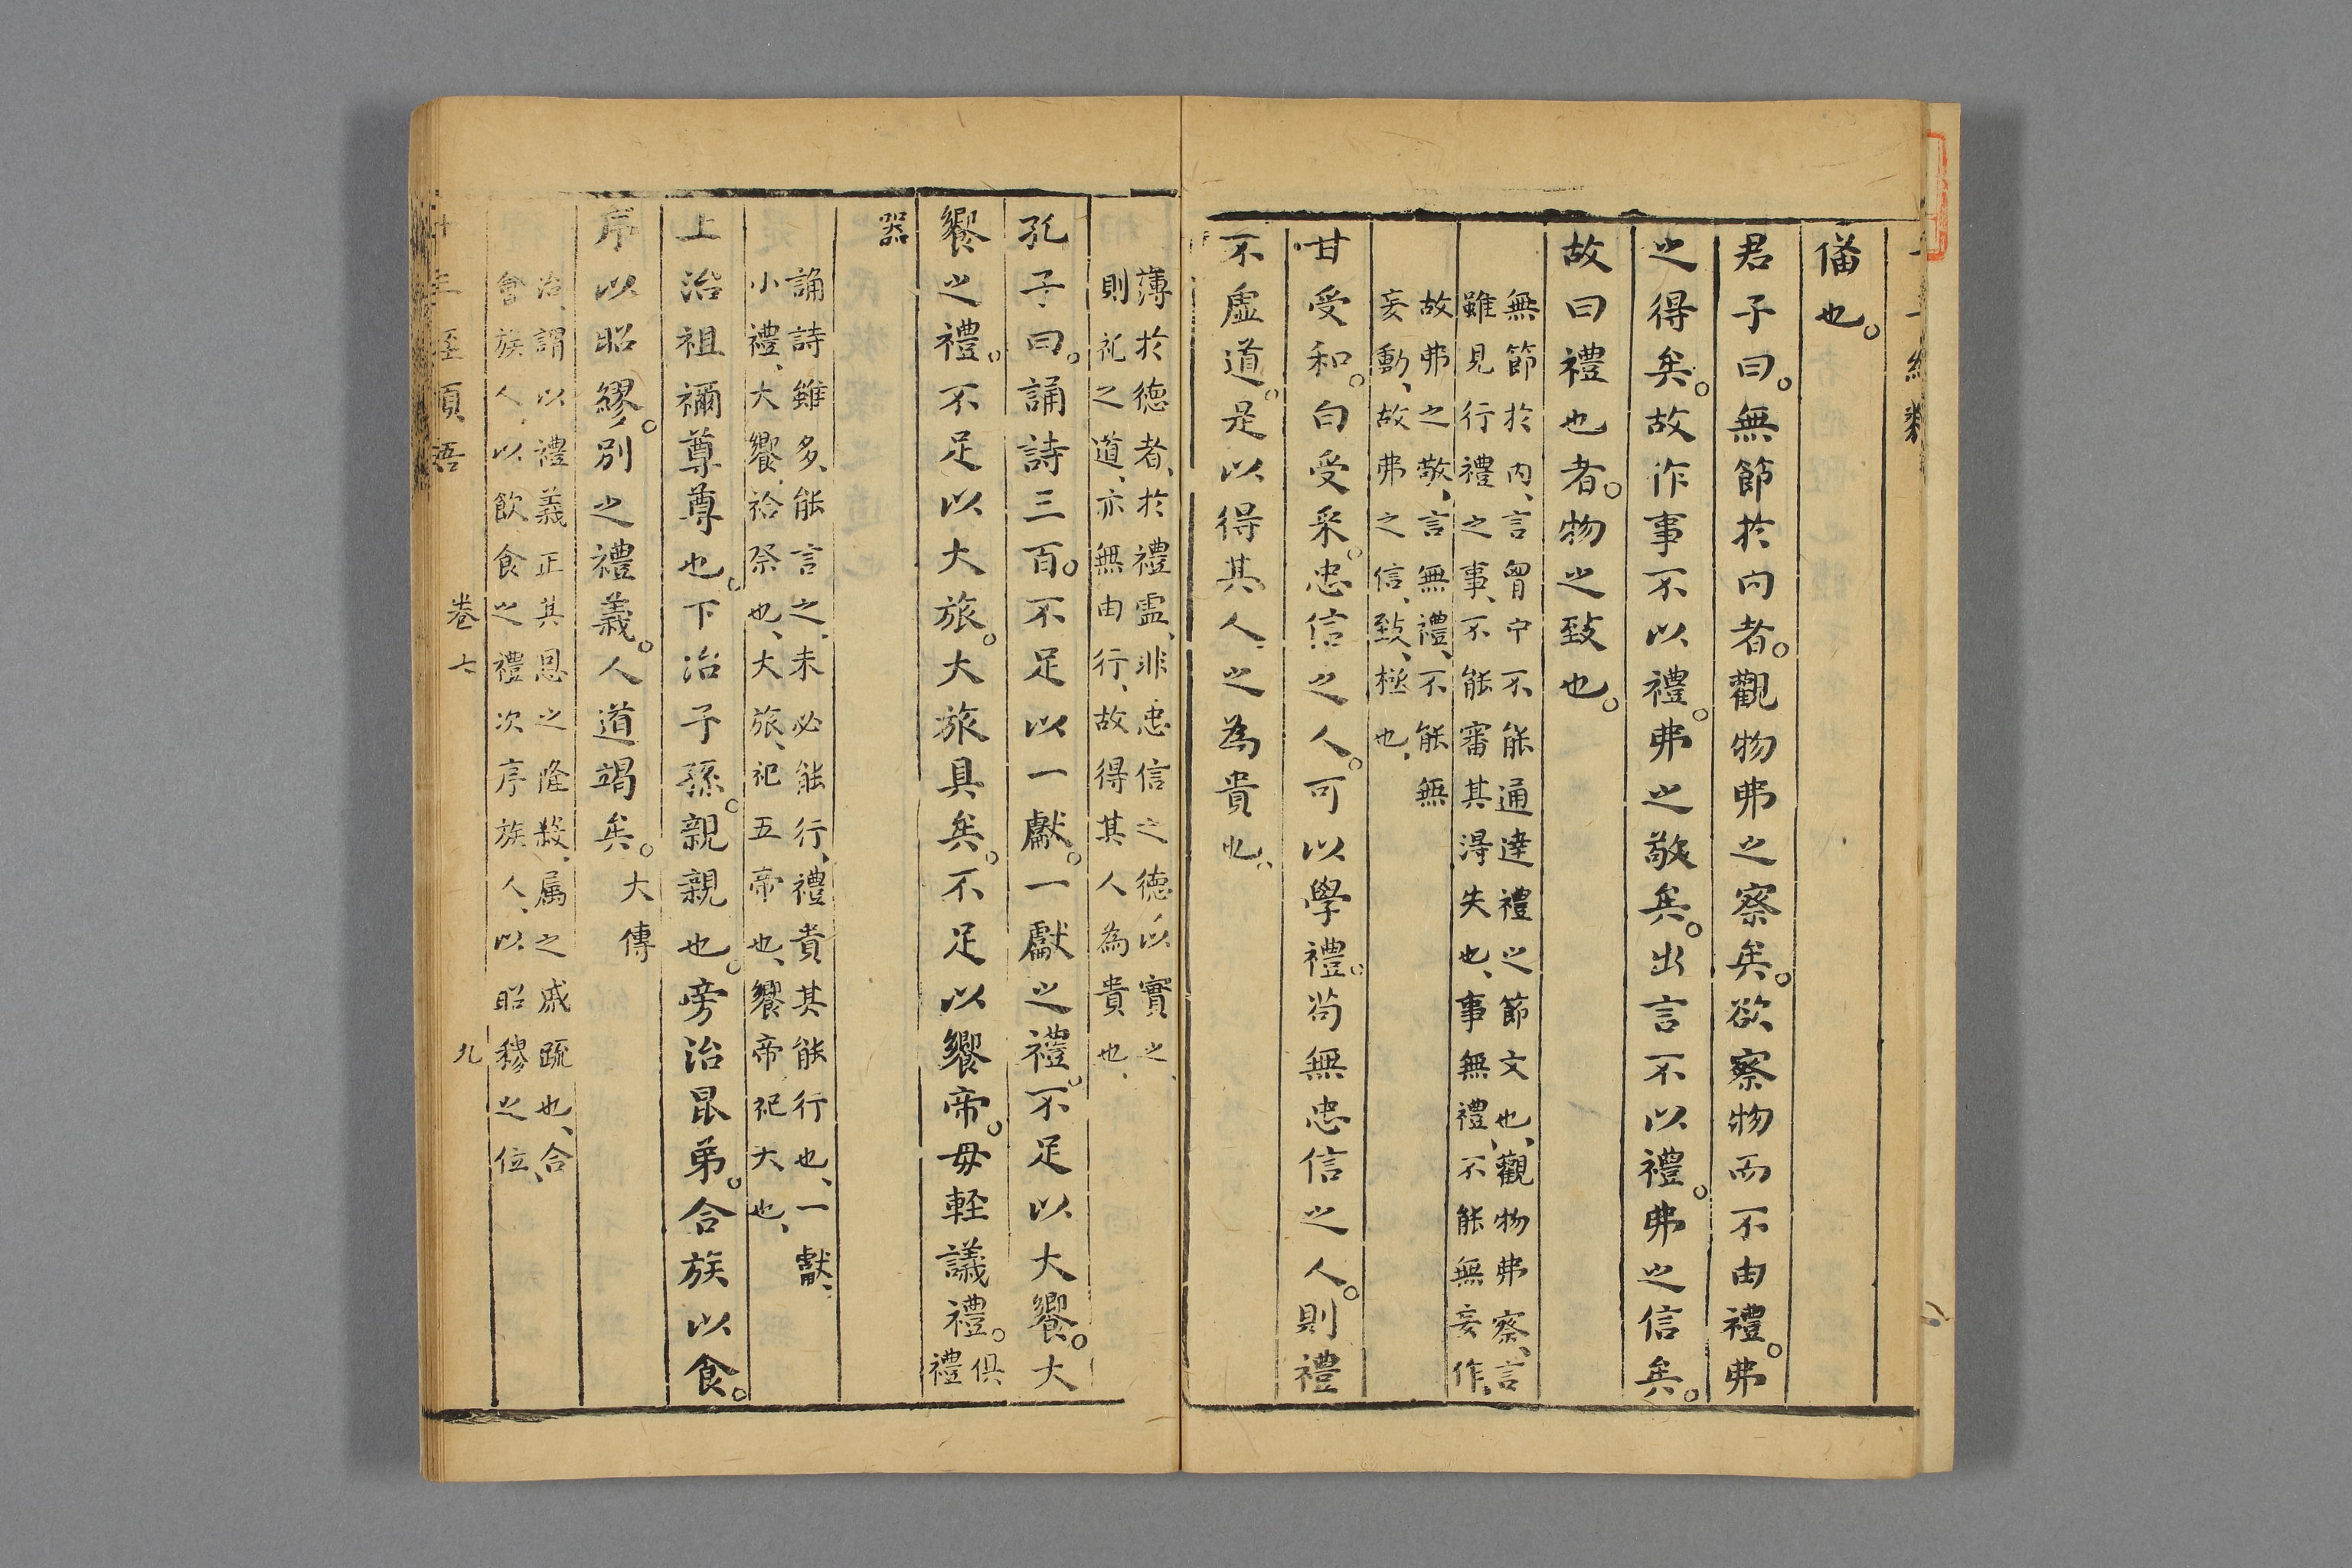 備也。
君子曰。無節於內者。觀物弗之察矣。欲察物而不由禮。弗
之得矣。故作事不以禮。弗之敬矣。出言不以禮。弗之信矣。
故曰禮也者。物之致也。
無節於內、言胷中不能通達禮之節文也、觀物弗察、言
雖見行禮之事、不能審其淂失也、事無禮、不能無妄作、
故弗之敬、言無禮、不能無
妄動、故弗之信、致、極也、
甘受和。白受采。忠信之人。可以學禮。茍無忠信之人。則禮
不虛道。是以得其人之為貴也。
薄於德者、於禮虛、非忠信之德以實之、
則礼之道、亦無由行、故得其人為貴也、
孔子曰。誦詩三百。不足以一獻。一獻之禮。不足以大饗。大
饗之禮。不足以大旅。大旅具矣。不足以饗帝。毋軽議禮。俱禮
器
誦詩雖多、能言之、未必能行、禮貴其能行也、一獻、
小禮、大饗、祫祭也、大旅、祀五帝也、饗帝、祀大也、
上治祖禰尊尊也。下治子孫。親親也。旁治昆弟。合族以食。
序以昭繆。別之禮義。人道竭矣。大傳
治、謂以禮義正其恩之隆殺、属之戚疏也、合
會族人、以飲食之禮次序族人、以昭穆之位、
十三經類語 卷七 九